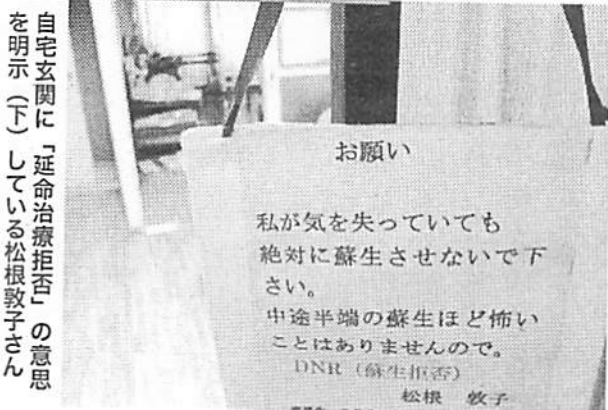 自宅玄関に「延命治療拒否」の意思
を明示（下）している松根敦子さん
お願い
私が気を失っていても
絶対に蘇生させないで下
さい。
中途半端の蘇生ほど怖い
ことはありませんので。
DNR（蘇生拒否）
松根　敦子